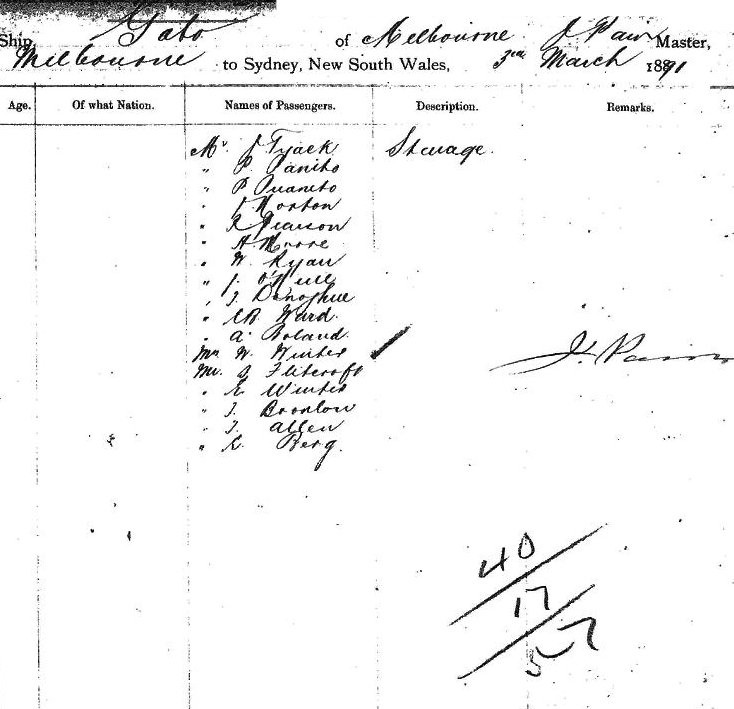 Ship Gabo of Melbourne J Pain Master,
Melbourne to Sydney, New South Wales, 3rd March 1891
Age. Of what Nation. Names of Passengers. Description. Remarks.
Mr J Tyack Steerage.
" P. Panito
" P Puanito
" J Morton
" R Pearson
" H Moore
" W Ryan
" J.
" J Donoghue
" Ward.
" A. Boland.
Mrs W. Winter
J. Pain
Mr. Flitcroft
" E Winter
" J. Bromlow
" J. Allen
" E. Berg.
40
17
57